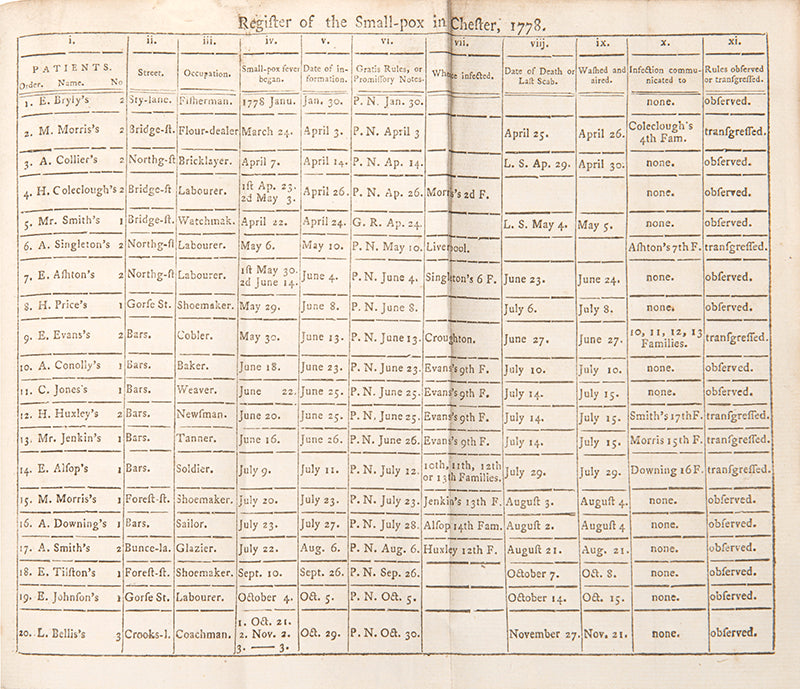 Regiſter of the Small-pox in Cheſter, 1778.
i. ii. iii. iv. v. vi. vii. viij. ix. x. xi.
PATIENTS. Order. Name. No Street. Occupation. Small-pox fever began. Date of information. Gratis Rules, or Promiſſory Notes. infected. Date of Death or Laſt Scab. Waſhed and aired. Infection communicated to Rules obſerved or tranſgreſſed.
1. E. Bryly's 2 Sty-lane. Fiſherman. 1778 Janu. Jan. 30. P. N. Jan. 30. none. obſerved.
2. M. Morris's 2 Bridge-ſt Flour-dealer March 24. April 3. P. N. April 3 April 25. April 26. Coleclough's 4th Fam. tranſgreſſed.
3. A. Collier's 2 Northg-ſt Bricklayer. April 7. April 14. P. N. Ap. 14. L. S. Ap. 29. April 30. none. obſerved.
4. H. Coleclough's 2 Bridge-ſt Labourer. 1ſt Ap. 23. 2d May 3. April 26. P. N. Ap. 26. Morris's 2d F. none. obſerved.
5. Mr. Smith's 1 Bridge-ſt. Watchmak. April 22. April 24. G. R. Ap. 24. L. S. May 4. May 5. none. obſerved.
6. A. Singleton's 2 Northg-ſt Labourer. May 6. May 10. P. N. May 10. Liverpool. Aſhton's 7th F. tranſgreſſed.
7. E. Aſhton's 2 Northg-ſt Labourer. 1ſt May 30. 2d June 14. June 4. P. N. June 4. Singleton's 6 F. June 23. June 24. none. obſerved.
8. H. Price's 1 Gorſe St. Shoemaker. May 29. June 8. P. N. June 8. July 6. July 8. none. obſerved.
9. E. Evans's 2 Bars. Cobler. May 30. June 13. P. N. June 13. Croughton. June 27. June 27. 10, 11, 12, 13 Families. tranſgreſſed.
10. A. Conolly's 1 Bars. Baker. June 18. June 23. P. N. June 23. Evans's 9th F. July 10. July 10. none. obſerved.
11. C. Jones's 1 Bars. Weaver. June 22. June 25. P. N. June 25. Evans's 9th F. July 14. July 15. none. obſerved.
12. H. Huxley's 2 Bars. Newſman. June 20. June 25. P. N. June 25. Evans's 9th F. July 14. July 15. Smith's 17th F. tranſgreſſed.
13. Mr. Jenkin's 1 Bars. Tanner. June 16. June 26. P. N. June 26. Evans's 9th F. July 14. July 15. Morris 15th F. tranſgreſſed.
14. E. Alſop's 1 Bars. Soldier. July 9. July 11. P. N. July 12. 10th, 11th, 12th or 13th Families. July 29. July 29. Downing 16 F. tranſgreſſed.
15. M. Morris's 1 Foreſt-ſt. Shoemaker. July 20. July 23. P. N. July 23. Jenkin's 13th F. Auguſt 3. Auguſt 4. none. obſerved.
16. A. Downing's 1 Bars. Sailor. July 23. July 27. P. N. July 28. Alſop 14th Fam. Auguſt 2. Auguſt 4 none. obſerved.
17. A. Smith's 2 Bunce-la. Glazier. July 22. Aug. 6. P. N. Aug. 6. Huxley 12th F. Auguſt 21. Aug. 21. none. obſerved.
18. E. Tilſton's 1 Foreſt-ſt. Shoemaker. Sept. 10. Sept. 26. P. N. Sep. 26. October 7. Oct. 8. none. obſerved.
19. E. Johnſon's 1 Gorſe St. Labourer. October 4. Oct. 5. P. N. Oct. 5. October 14. Oct. 15. none. obſerved.
20. L. Bellis's 3 Crooks-l. Coachman. 1. Oct. 21. 2. Nov. 2. 3. — 3. Oct. 29. P. N. Oct. 30. November 27. Nov. 21. none. obſerved.